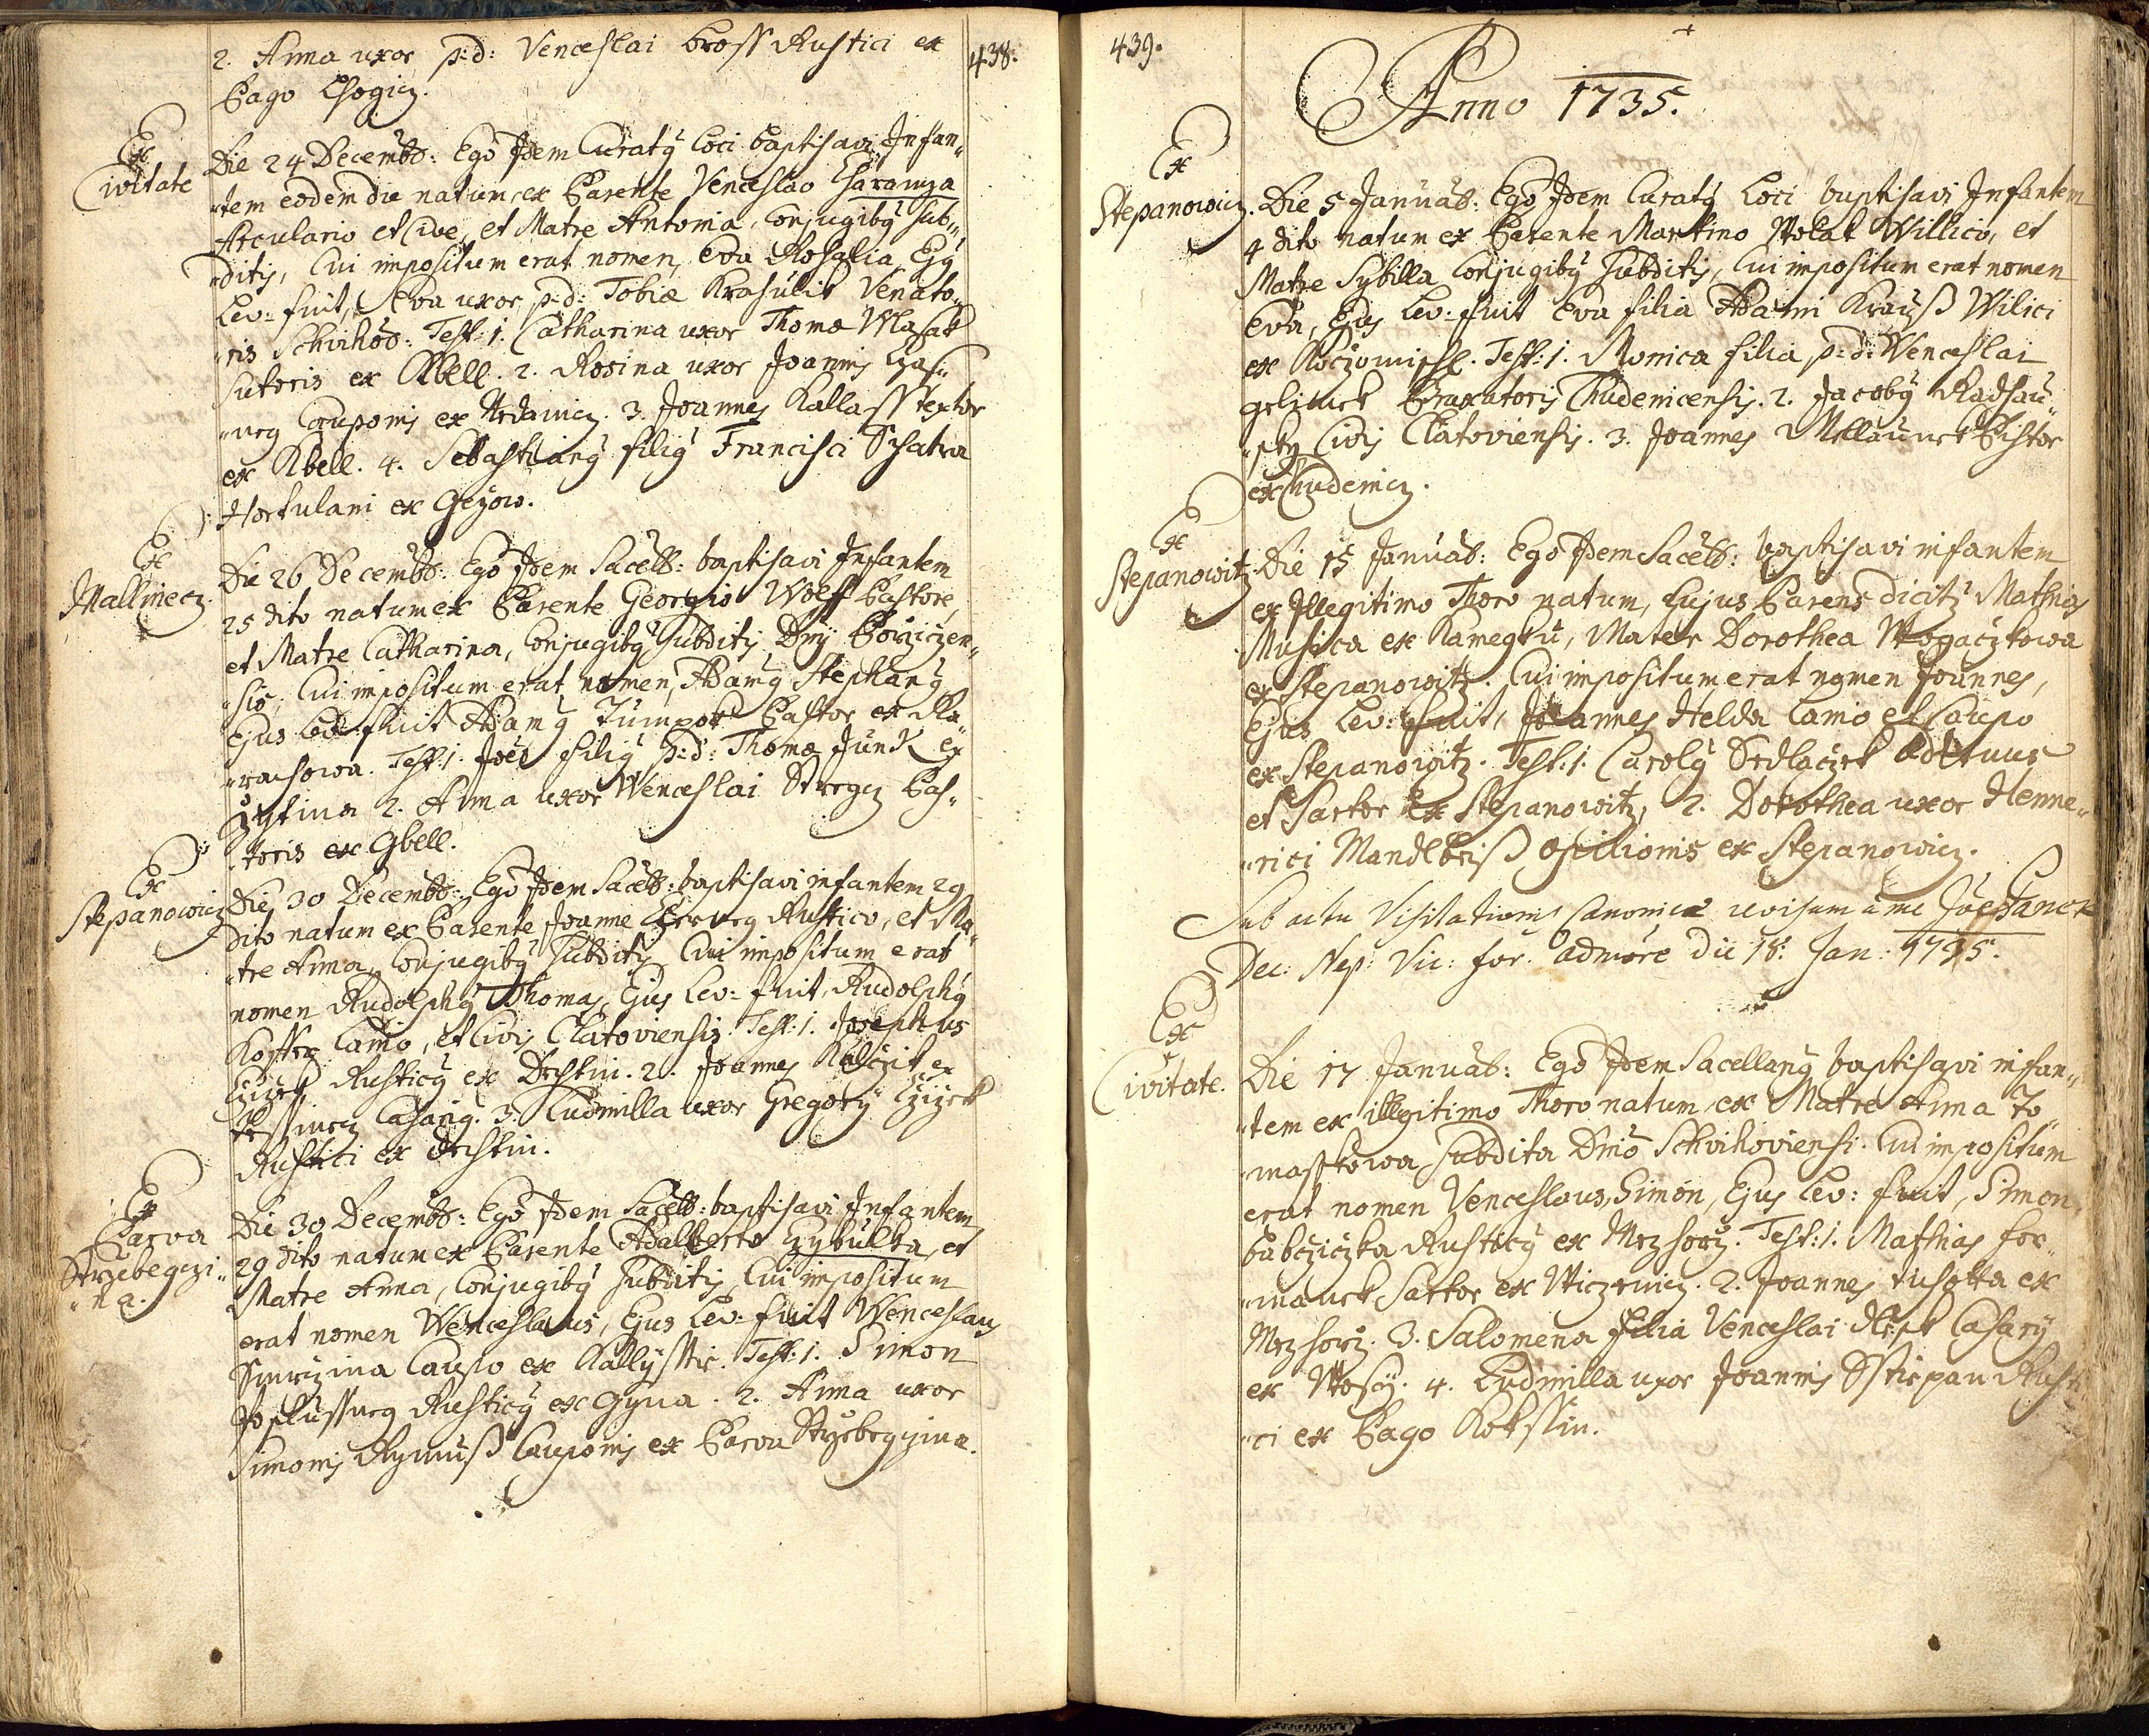 438.
2. Anna uxor p:d: Venceslai Bross Rustici ex
Pago Lhogicz.
Ex
Civitate
Die 24 Decembr: Ego Idem Curatq Loci baptisavi Infan„
„tem eodem die natum ex Parente Venceslao Charamza
Arculario et Cive, et Matre Antonia, Conjugibq Sub„
„ditis, Cui impositum erat nomen, Eva Rosalia, Ejq
Lev: fuit, Eva uxor p:d: Tobiæ Krasulik Venato„
„ris Schvihov: Test: 1. Catharina uxor Thomæ Wlasak
Sutoris ex Kbell. 2. Rosina uxor Joannis
Cauponis ex 3. Joannes Kallass textor
ex Kbell. 4. Sebastianq filiq Francisci Schatra
Hortulani ex Gezow.
Ex
Mallinecz.
Die 26 Decembr: Ego Idem Sacell: baptisavi Infantem
25 dito natum ex Parente Georgio Wolff Pastore,
et Matre Catharina, Conjugibq Subditis Dnÿ Porziczen„
„sis, Cui impositum erat nomen, Adamq Stephanq
Ejus Lev: fuit Adamq Pastor ex Ra„
Test: 1. Joes filiq p:d: Thomæ Junek ex
2. Anna uxor Wenceslai Pas„
„toris ex Gbell.
Ex
Stepanowicz
Die 30 Decembr: Ego Idem Sacell: baptisavi infantem 29
dito natum ex Parente Joanne Rustico, et Ma„
„tre Anna, Conjugibq Subditis Cui impositum erat
nomen Rudolphq Thomas, Ejus Lev: fuit, Rudolphq
Lanio, et Civis Clatoviensis. Test: 1. Josephus
Rusticq ex Drstin. 2. Joannes ex
Casariq. 3. Ludmilla uxor Gregorÿ Czizek
Rustici ex Drstin.
Ex
Parva
Strzebegczi„
„na.
Die 30 Decembr: Ego Idem Sacell: baptisavi Infantem
29 dito natum ex Parente Adalberto Czybulka, et
Matre Anna, Conjugibq Subditis, Cui impositum
erat nomen Wenceslaus, Ejus Lev: fuit Wenceslaus
Caupo ex Test: 1. Simon
Rusticq ex Gyna. 2. Anna uxor
Simonis Cauponis ex Parva Strzebegczina.
439.
Anno 1735.
Ex
Stepanowicz.
Die 5 Januar: Ego Idem Curatq Loci baptisavi Infantem
4 dito natum ex Parente Martino Wolak Willico, et
Matre Sybilla Conjugibq Subditis, Cui impositum erat nomen
Eva, Ejus Lev: fuit Eva filia Adami Krauß Wilici
ex Test: 1. Monica filia p:d: Wenceslai
Braxatoris Chudenicensis. 2. Jacobq Radsau„
„sky Civis Clatoviensis. 3. Joannes Pistor
ex Chudenicz.
Ex
Stepanowitz
Die 15 Januar: Ego Idem Sacell: baptisavi infantem
ex Illegitimo Thoro natum, Cujus Parens dicitq Mathias
Musica ex Kamegku, Mater Dorothea Wogaczkowa
ex Stepanowitz. Cui impositum erat nomen Joannes,
Ejus Lev: fuit, Joannes Helda Lanio et Caupo
ex Stepanowitz. Test: 1. Carolq Sedlaczek Aedituus
et Sartor ex Stepanowitz, 2. Dorothea uxor Henne„
„rici Mandlbeiß Opilionis ex Stepanowicz.
Sub actu Visitationis Canonicæ revisum a me Joe Vanek
Dec: Nep: Vic: for. admôre die 18. Jan: 1735.
Ex
Civitate.
Die 17 Januar: Ego Idem Sacellanq baptisavi infan„
„tem ex illegitimo Thoro natum, ex Matre Anna To„
„masskowa, Subdita Dnio Schvihoviensi. Cui impositum
erat nomen Venceslaus, Simon, Ejus Lev: fuit, Simon
Babcziczka Rusticq ex Test: 1. Mathias For„
„manek Sartor ex 2. Joannes ex
3. Salomena filia Venceslai Casarÿ
ex 4. Ludmilla uxor Joannis Sstiepan Rusti„
„ci ex Pago Kokssin.